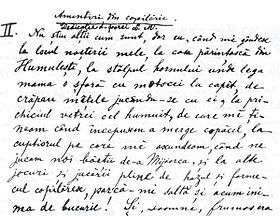 Amintiri din copilărie
II. Nu știu alții cum sunt, dar eu, când mă gândesc
la locul nașterii mele, la casa părintească din
Humulești, la stâlpul hornului unde lega
mama o sfară cu motocei la capăt, de
crăpau mâțele jucându-se cu ei, la pri-
chiciul vetrei cel humuit, de care mă ți-
neam când începusem a merge copăcel, la
cuptiorul pe care mă ascundeam, când ne
jucam noi băieții de-a Mijoarca, și la alte
jocuri și jucării pline de hazul și farme-
cul copilăresc, parcă-mi saltă și acum ini-
ma de bucurie! Și, Doamne, frumos era